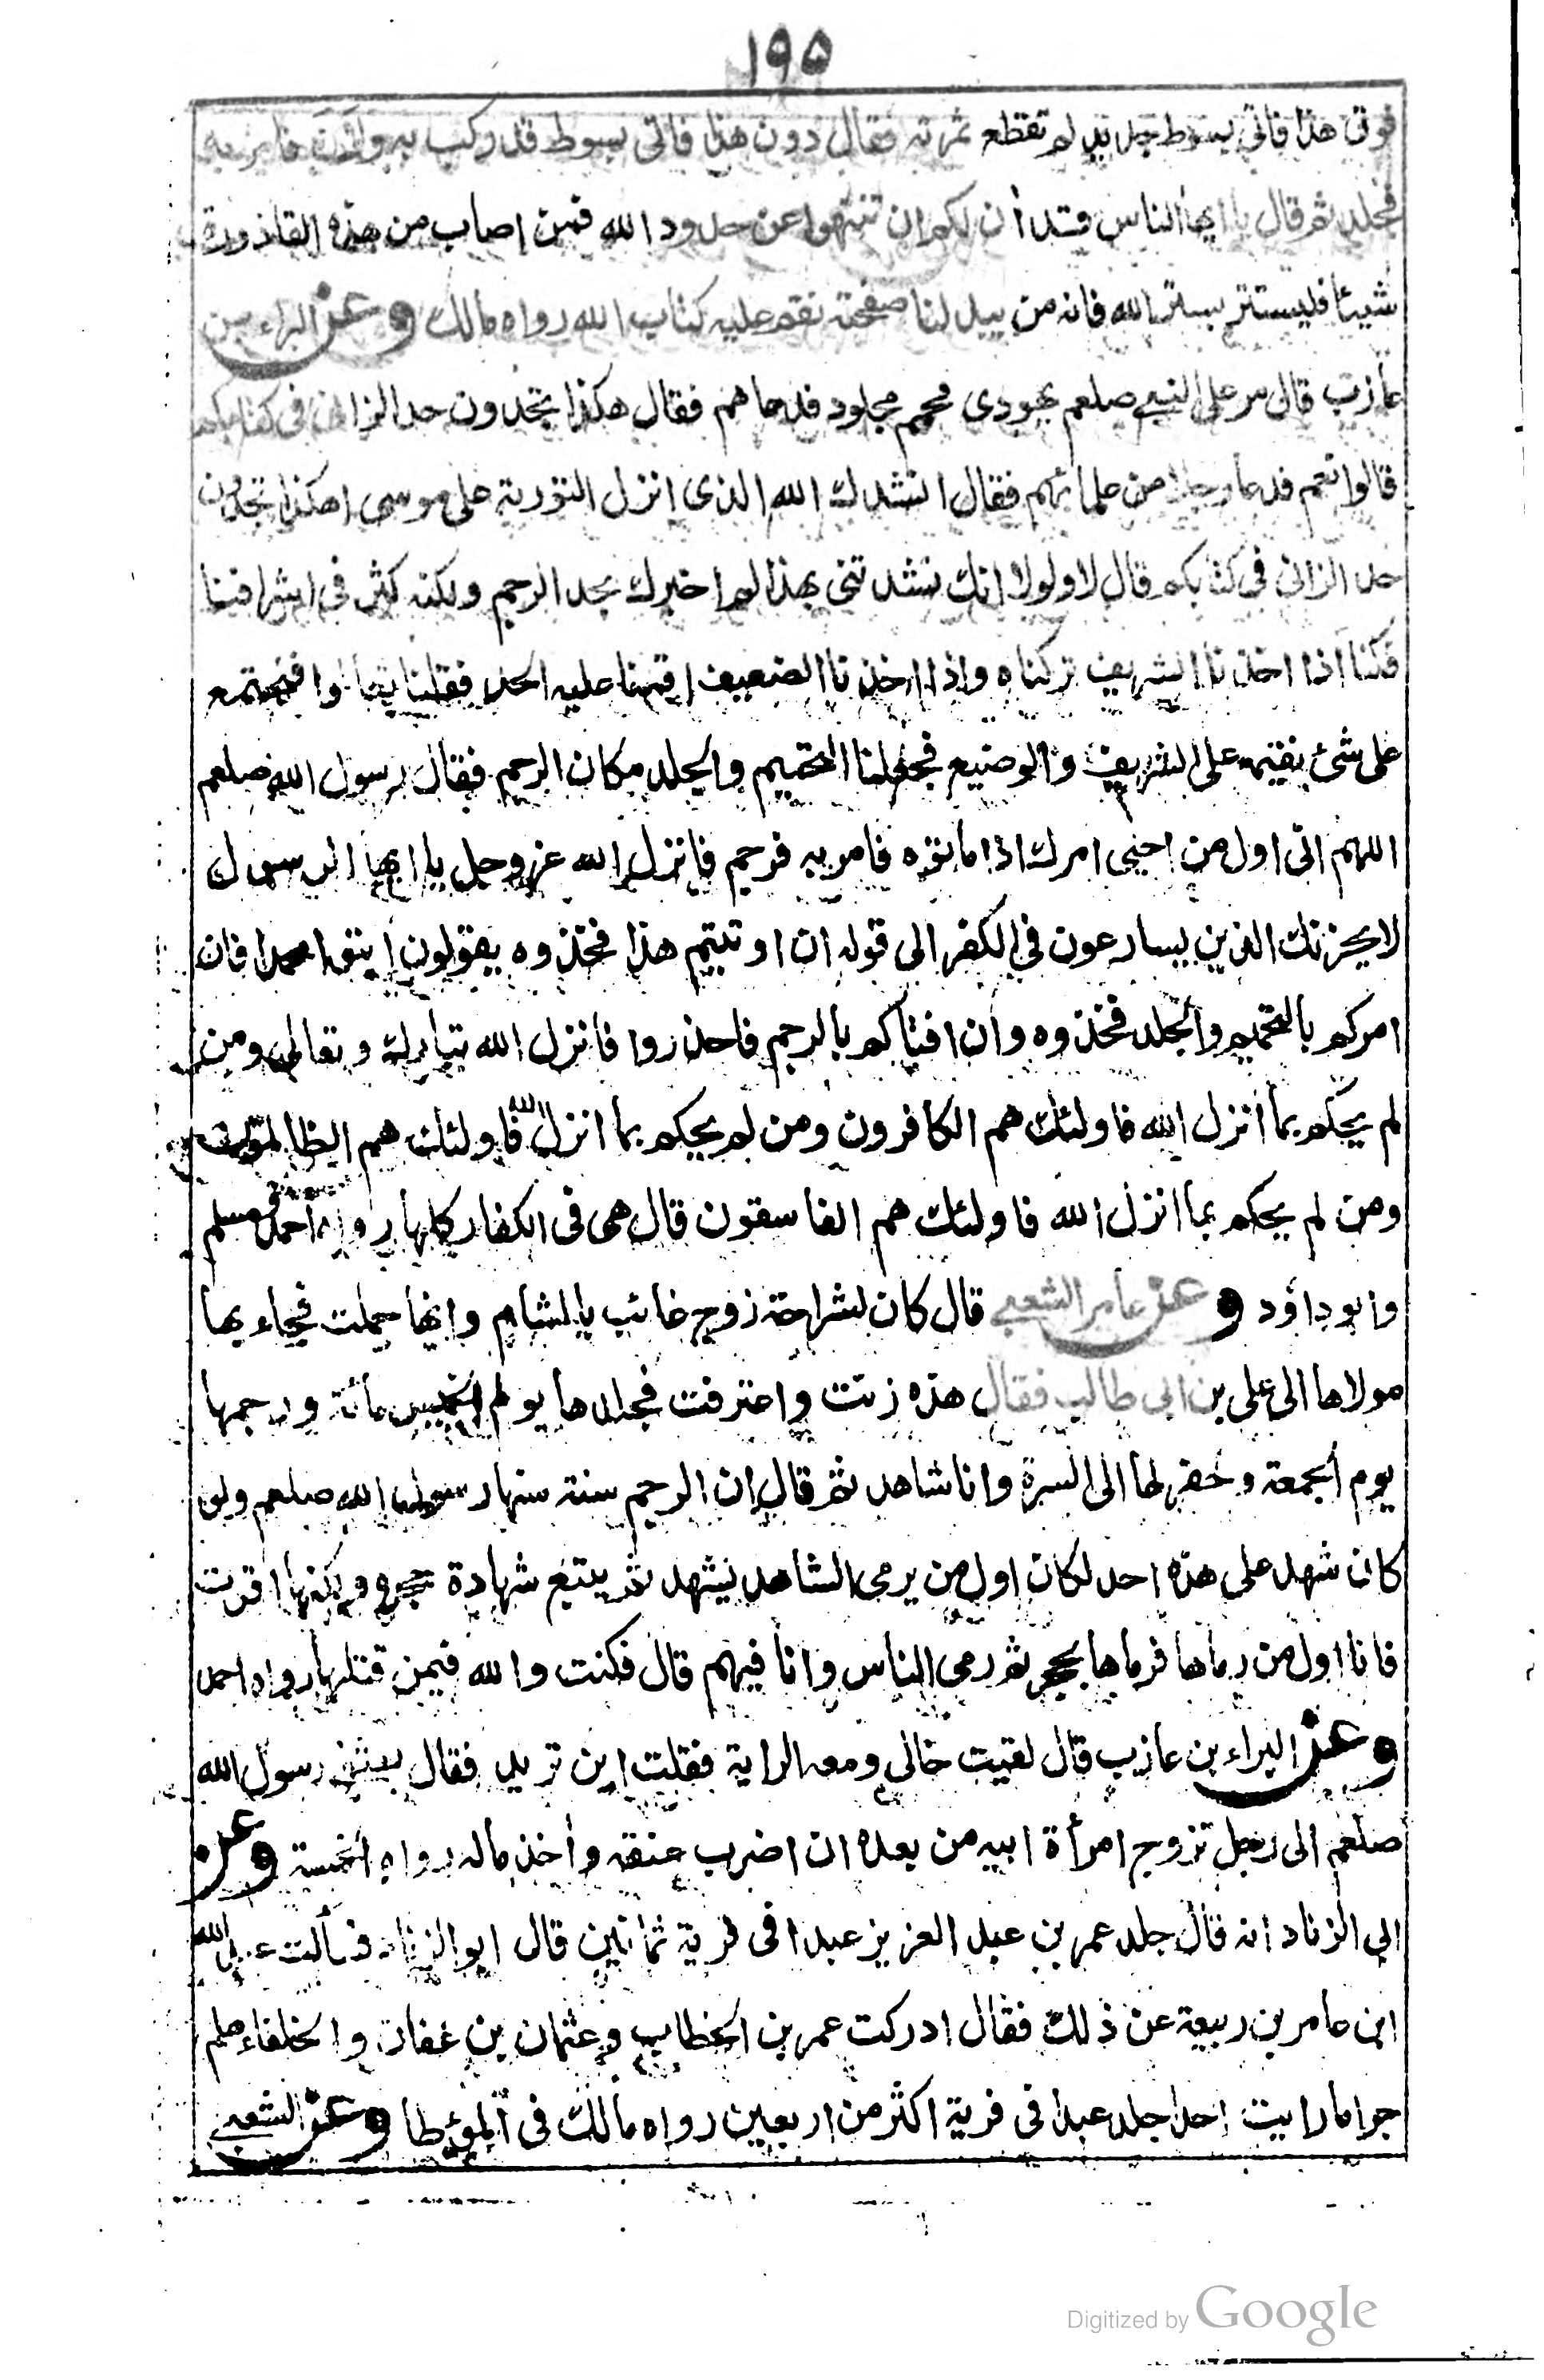 ١٩٥
فوق هذا فاتى بسوط جديد لم تقطع ثمرته فقال دون هذا فاتى بسوط قد ركب به ولان فامر به
فجلد ثم قال يا ايها الناس قد أن لكم ان تنتهوا عن حدود الله فمن اصاب من هذه القاذورة
شيئا فليستتر بستر الله فانه من يبد لنا صفحته نقم عليه كتاب الله رواه مالك وعن البراء بن
عازب قال مر على النبي صلعم بهودى محمم مجلود فدعاهم فقال هكذا تجدون حد الزانى فى كتابكم
قالوا نعم فدعا رجلا من علمائهم فقال انشدك الله الذى انزل التورية على موسى اهكذا تجدون
حد الزانى فى كتابكم قال لا ولولا انك نشدتنى بهذا لم اخبرك بحد الرجم ولكنه كثر فى اشرافنا
فكنا اذا اخذنا الشريف تركناه واذا اخذنا الضعيف اقمنا عليه الحد فقلنا تعالوا فنجتمع
على شئ نقيمه على الشريف والوضيع فجعلنا التحميم والجلد مكان الرجم فقال رسول الله صلعم
اللهم انى اول من احيى امرك اذ اماتوه فامر به فرجم فانزل الله عز وجل يا ايها الرسول
لا يحزنك الذين يسارعون فى الكفر الى قوله ان اوتيتم هذا فخذوه يقولون ايتوا محمدا فان
امركم بالتحميم والجلد فخذوه وان افتاكم بالرجم فاحذروا فانزل الله تبارك وتعالى ومن
لم يحكم بما انزل الله فاولئك هم الكافرون ومن لم يحكم بما انزل الله فاولئك هم الظالمون
ومن لم يحكم بما انزل الله فاولئك هم الفاسقون قال هى فى الكفار كلها رواه احمد ومسلم
وابو داؤد وعن عامر الشعبي قال كان لشراحة زوج غائب بالشام وانها حملت فجاء بها
مولاها الى على بن ابى طالب فقال هذه زنت واعترفت فجلدها يوم الخميس مائة ورجمها
يوم الجمعة وحفر لها الى السرة وانا شاهد ثم قال ان الرجم سنة سنها رسول الله صلعم ولو
كان شهد على هذه احد لكان اول من يرمى الشاهد يشهد ثم يتبع شهادة حجره ولكنها اقرت
فانا اول من رماها فرماها بحجر ثم رمى الناس وانا فيهم قال فكنت والله فيمن قتلها رواه احمد
وعن البراء بن عازب قال لقيت خالى ومعه الراية فقلت اين تريد فقال بعثنى رسول الله
صلعم الى رجل تزوج امرأة ابيه من بعده ان اضرب عنقه وأخذ ماله رواه الخمسة وعن
ابي الزناد انه قال جلد عمر بن عبد العزيز عبدا فى فرية ثمانين قال ابو الزناد فسألت عبد الله
ابن عامر بن ربيعة عن ذلك فقال ادركت عمر بن الخطاب وعثمان بن عفان والخلفاء هلم
جرا ما رايت احدا جلد عبدا فى فرية اكثر من اربعين رواه مالك فى المؤطا وعن الشعبي
Digitized by Google